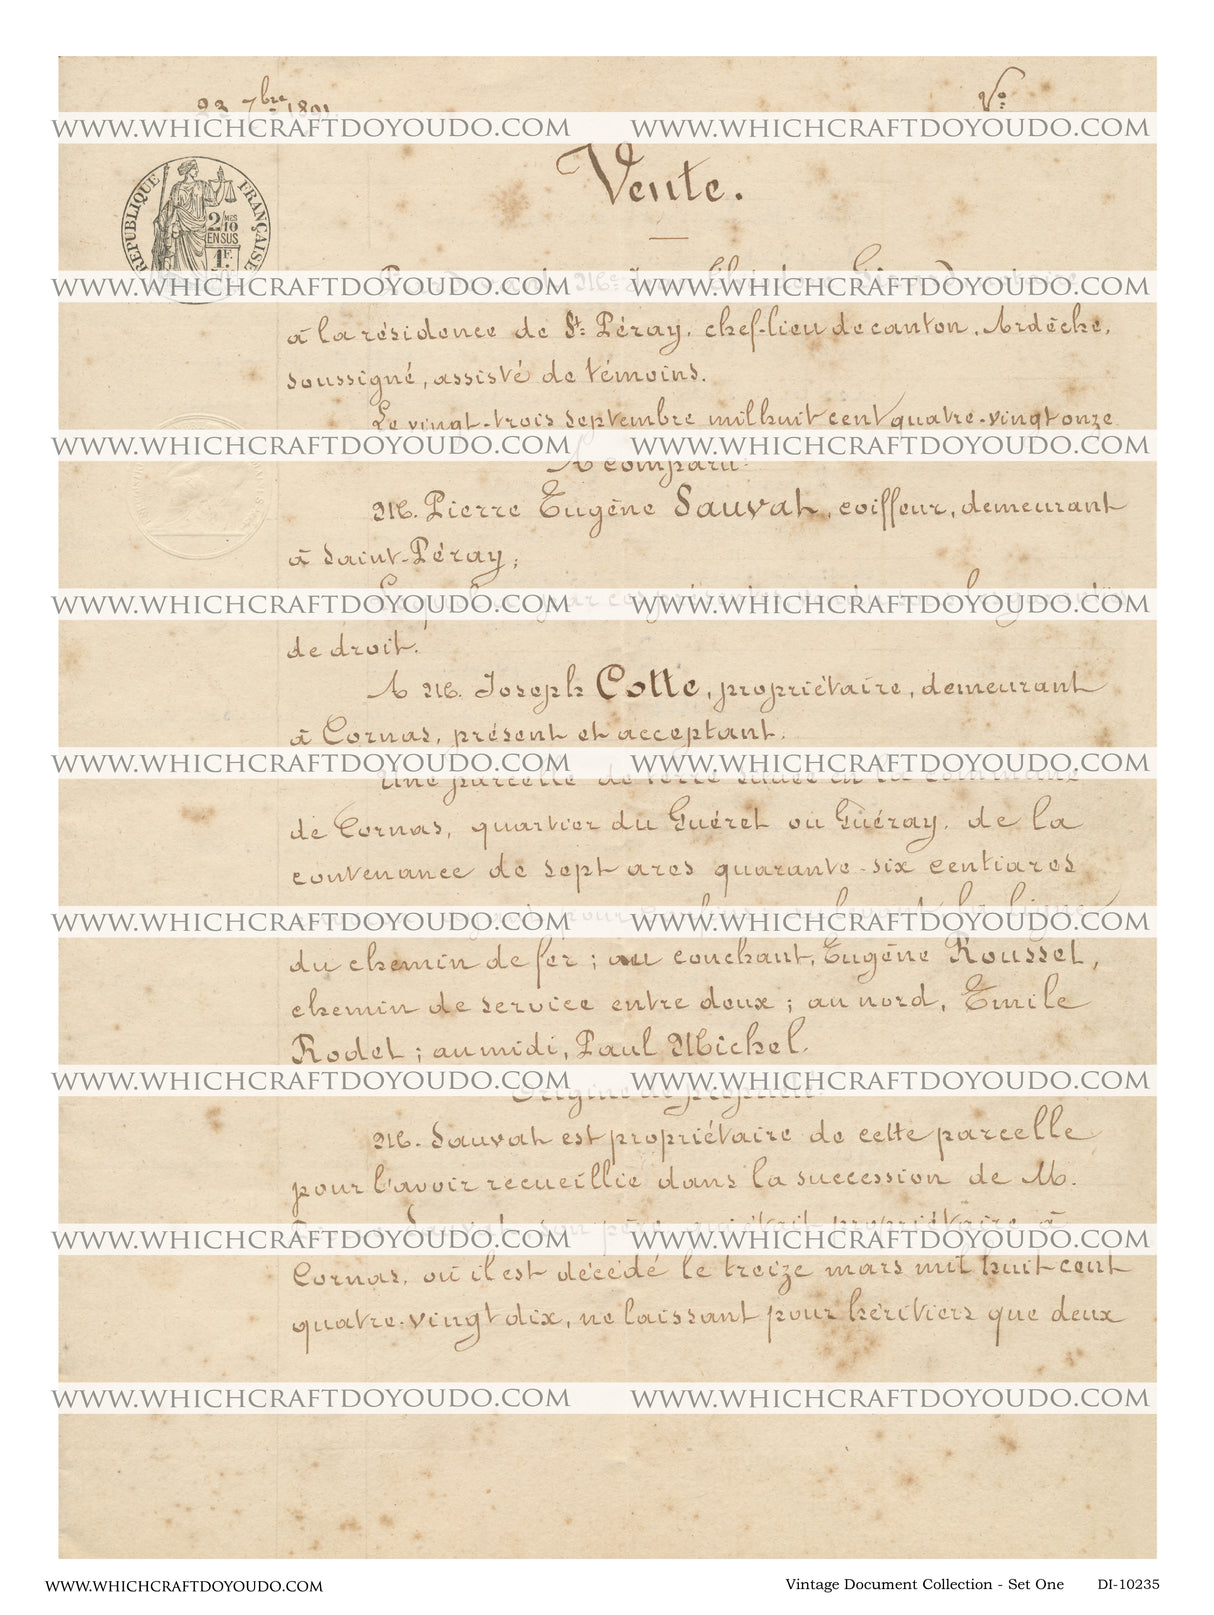 23 7bre 1891.
Vo:
WWW.WHICHCRAFTDOYOUDO.COM WWW.WHICHCRAFTDOYOUDO.COM
Vente.
RÉPUBLIQUE FRANÇAISE
2/10 MES
EN SUS
1F.
WWW.WHICHCRAFTDOYOUDO.COM WWW.WHICHCRAFTDOYOUDO.COM
à la résidence de St: Péray, chef-lieu de canton, Ardèche,
soussigné, assisté de témoins.
Le vingt-trois septembre mil huit cent quatre-vingt onze
WWW.WHICHCRAFTDOYOUDO.COM WWW.WHICHCRAFTDOYOUDO.COM
A comparu:
M. Pierre Eugène Sauvat, coiffeur, demeurant
à Saint-Péray;
WWW.WHICHCRAFTDOYOUDO.COM WWW.WHICHCRAFTDOYOUDO.COM
Lequel a par ces présentes vendu sous les garanties
de droit.
A M. Joseph Cotte, propriétaire, demeurant
à Cornas, présent et acceptant.
WWW.WHICHCRAFTDOYOUDO.COM WWW.WHICHCRAFTDOYOUDO.COM
Une parcelle de terre située en la commune
de Cornas, quartier du Guéret ou Guéray, de la
contenance de sept ares quarante-six centiares
WWW.WHICHCRAFTDOYOUDO.COM WWW.WHICHCRAFTDOYOUDO.COM
ayant pour confins: au levant, la ligne
du chemin de fer; au couchant, Eugène Rousset,
chemin de service entre deux; au nord, Emile
Rodet; au midi, Paul Michel.
WWW.WHICHCRAFTDOYOUDO.COM WWW.WHICHCRAFTDOYOUDO.COM
Origine de propriété
M. Sauvat est propriétaire de cette parcelle
pour l'avoir recueillie dans la succession de M.
Sauvat, son père, qui était propriétaire à
WWW.WHICHCRAFTDOYOUDO.COM WWW.WHICHCRAFTDOYOUDO.COM
Cornas, où il est décédé le treize mars mil huit cent
quatre-vingt dix, ne laissant pour héritiers que deux
WWW.WHICHCRAFTDOYOUDO.COM WWW.WHICHCRAFTDOYOUDO.COM
WWW.WHICHCRAFTDOYOUDO.COM Vintage Document Collection - Set One DI-10235